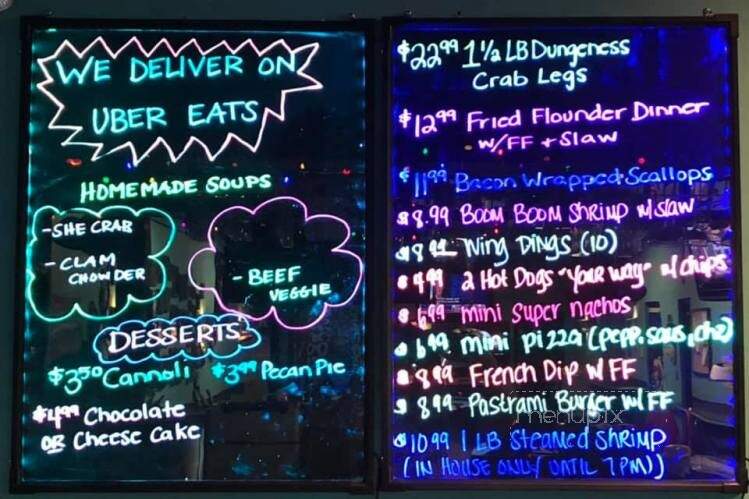 WE DELIVER ON
UBER EATS
HOMEMADE SOUPS
- SHE CRAB
- CLAM
CHOWDER
- BEEF
VEGGIE
DESSERTS
$3.50 Cannoli $3.99 Pecan Pie
$4.99 Chocolate
OR Cheese Cake
$22.99 1 1/2 LB Dungeness
Crab Legs
$12.99 Fried Flounder Dinner
W/FF + Slaw
$11.99 Bacon Wrapped Scallops
$8.99 BOOM BOOM SHRIMP w/ slaw
$8. Wing Dings (10)
$4.99 2 Hot Dogs "your way" w/ chips
$6.99 mini Super nachos
$6.99 mini pizza (pepp. saus, chz)
$8.99 French Dip w/ FF
$8.99 Pastrami Burger w/ FF
$10.99 1 LB Steamed Shrimp
(IN HOUSE ONLY UNTIL 7PM))
menupix